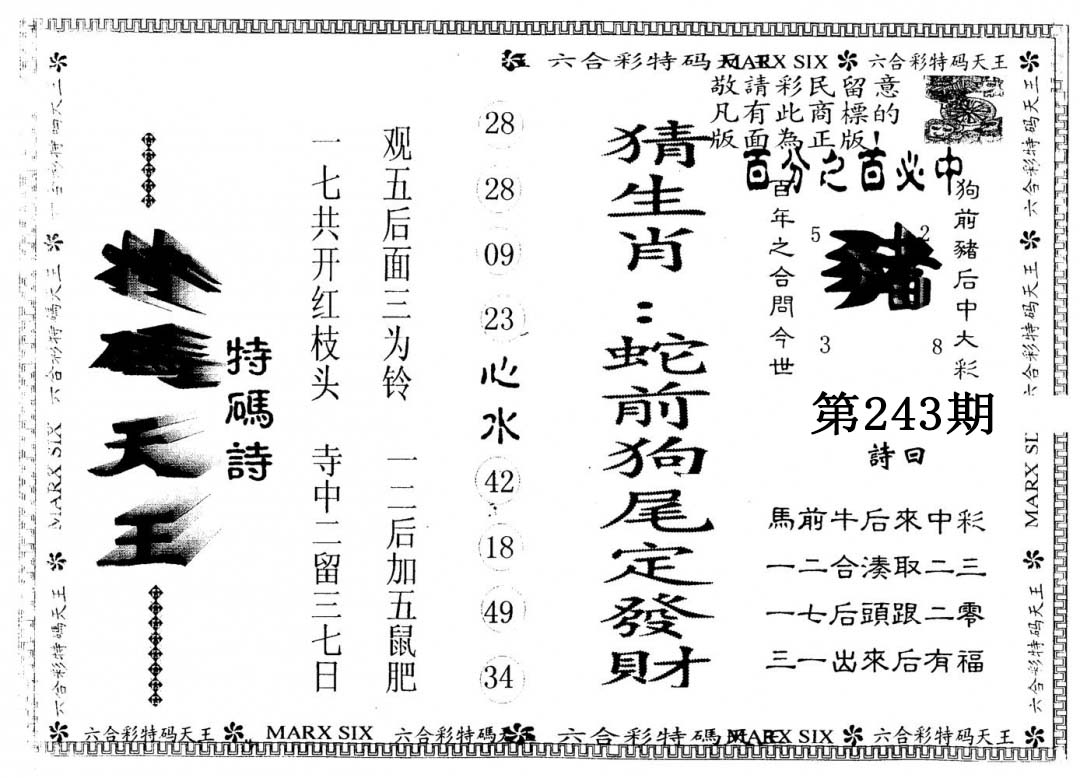 六合彩特码天王 MARX SIX 六合彩特码天王
敬請彩民留意
凡有此商標的
版面為正版！
百分之百必中
狗前豬后中大彩
百年之合問今世
豬
5
2
3
8
第243期
詩曰
馬前牛后來中彩
一二合湊取二三
一七后頭跟二零
三一出來后有福
猜生肖：蛇前狗尾定發財
28
28
09
23
心水
42
18
49
34
观五后面三为铃 一二后加五鼠肥
一七共开红枝头 寺中二留三七日
特碼詩
天王
六合彩特码天王
MARX SIX
六合彩特码天王
六合彩特码天王
六合彩特码天王
六合彩特码天王
六合彩特码天王 MARX SIX 六合彩特碼 六合彩特碼 MARX SIX 六合彩特码天王